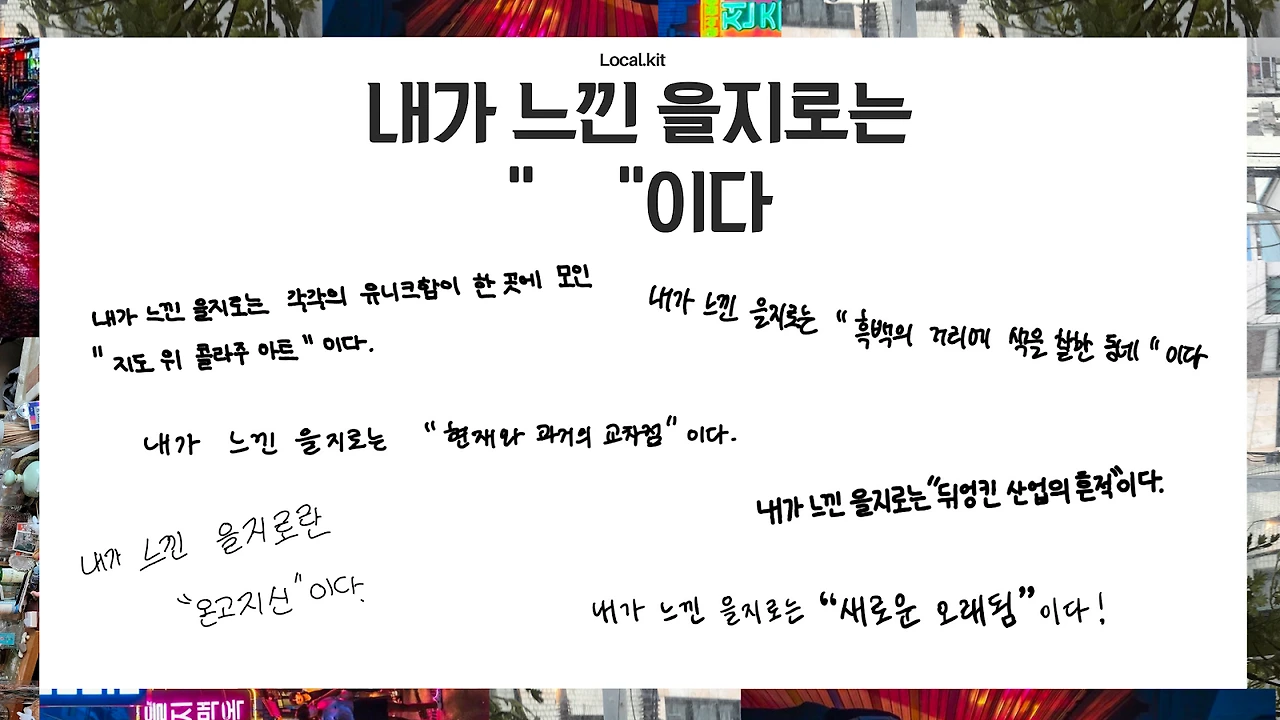 Local.kit
내가 느낀 을지로는
"    "이다
내가 느낀 을지로는 각각의 유니크함이 한 곳에 모인
" 지도 위 콜라주 아트 " 이다.
내가 느낀 을지로는 " 흑백의 거리에 색을 칠한 동네 " 이다
내가 느낀 을지로는 " 현재와 과거의 교차점 " 이다.
내가 느낀 을지로는 "뒤엉킨 산업의 흔적"이다.
내가 느낀 을지로란
"온고지신" 이다.
내가 느낀 을지로는 “새로운 오래됨” 이다!